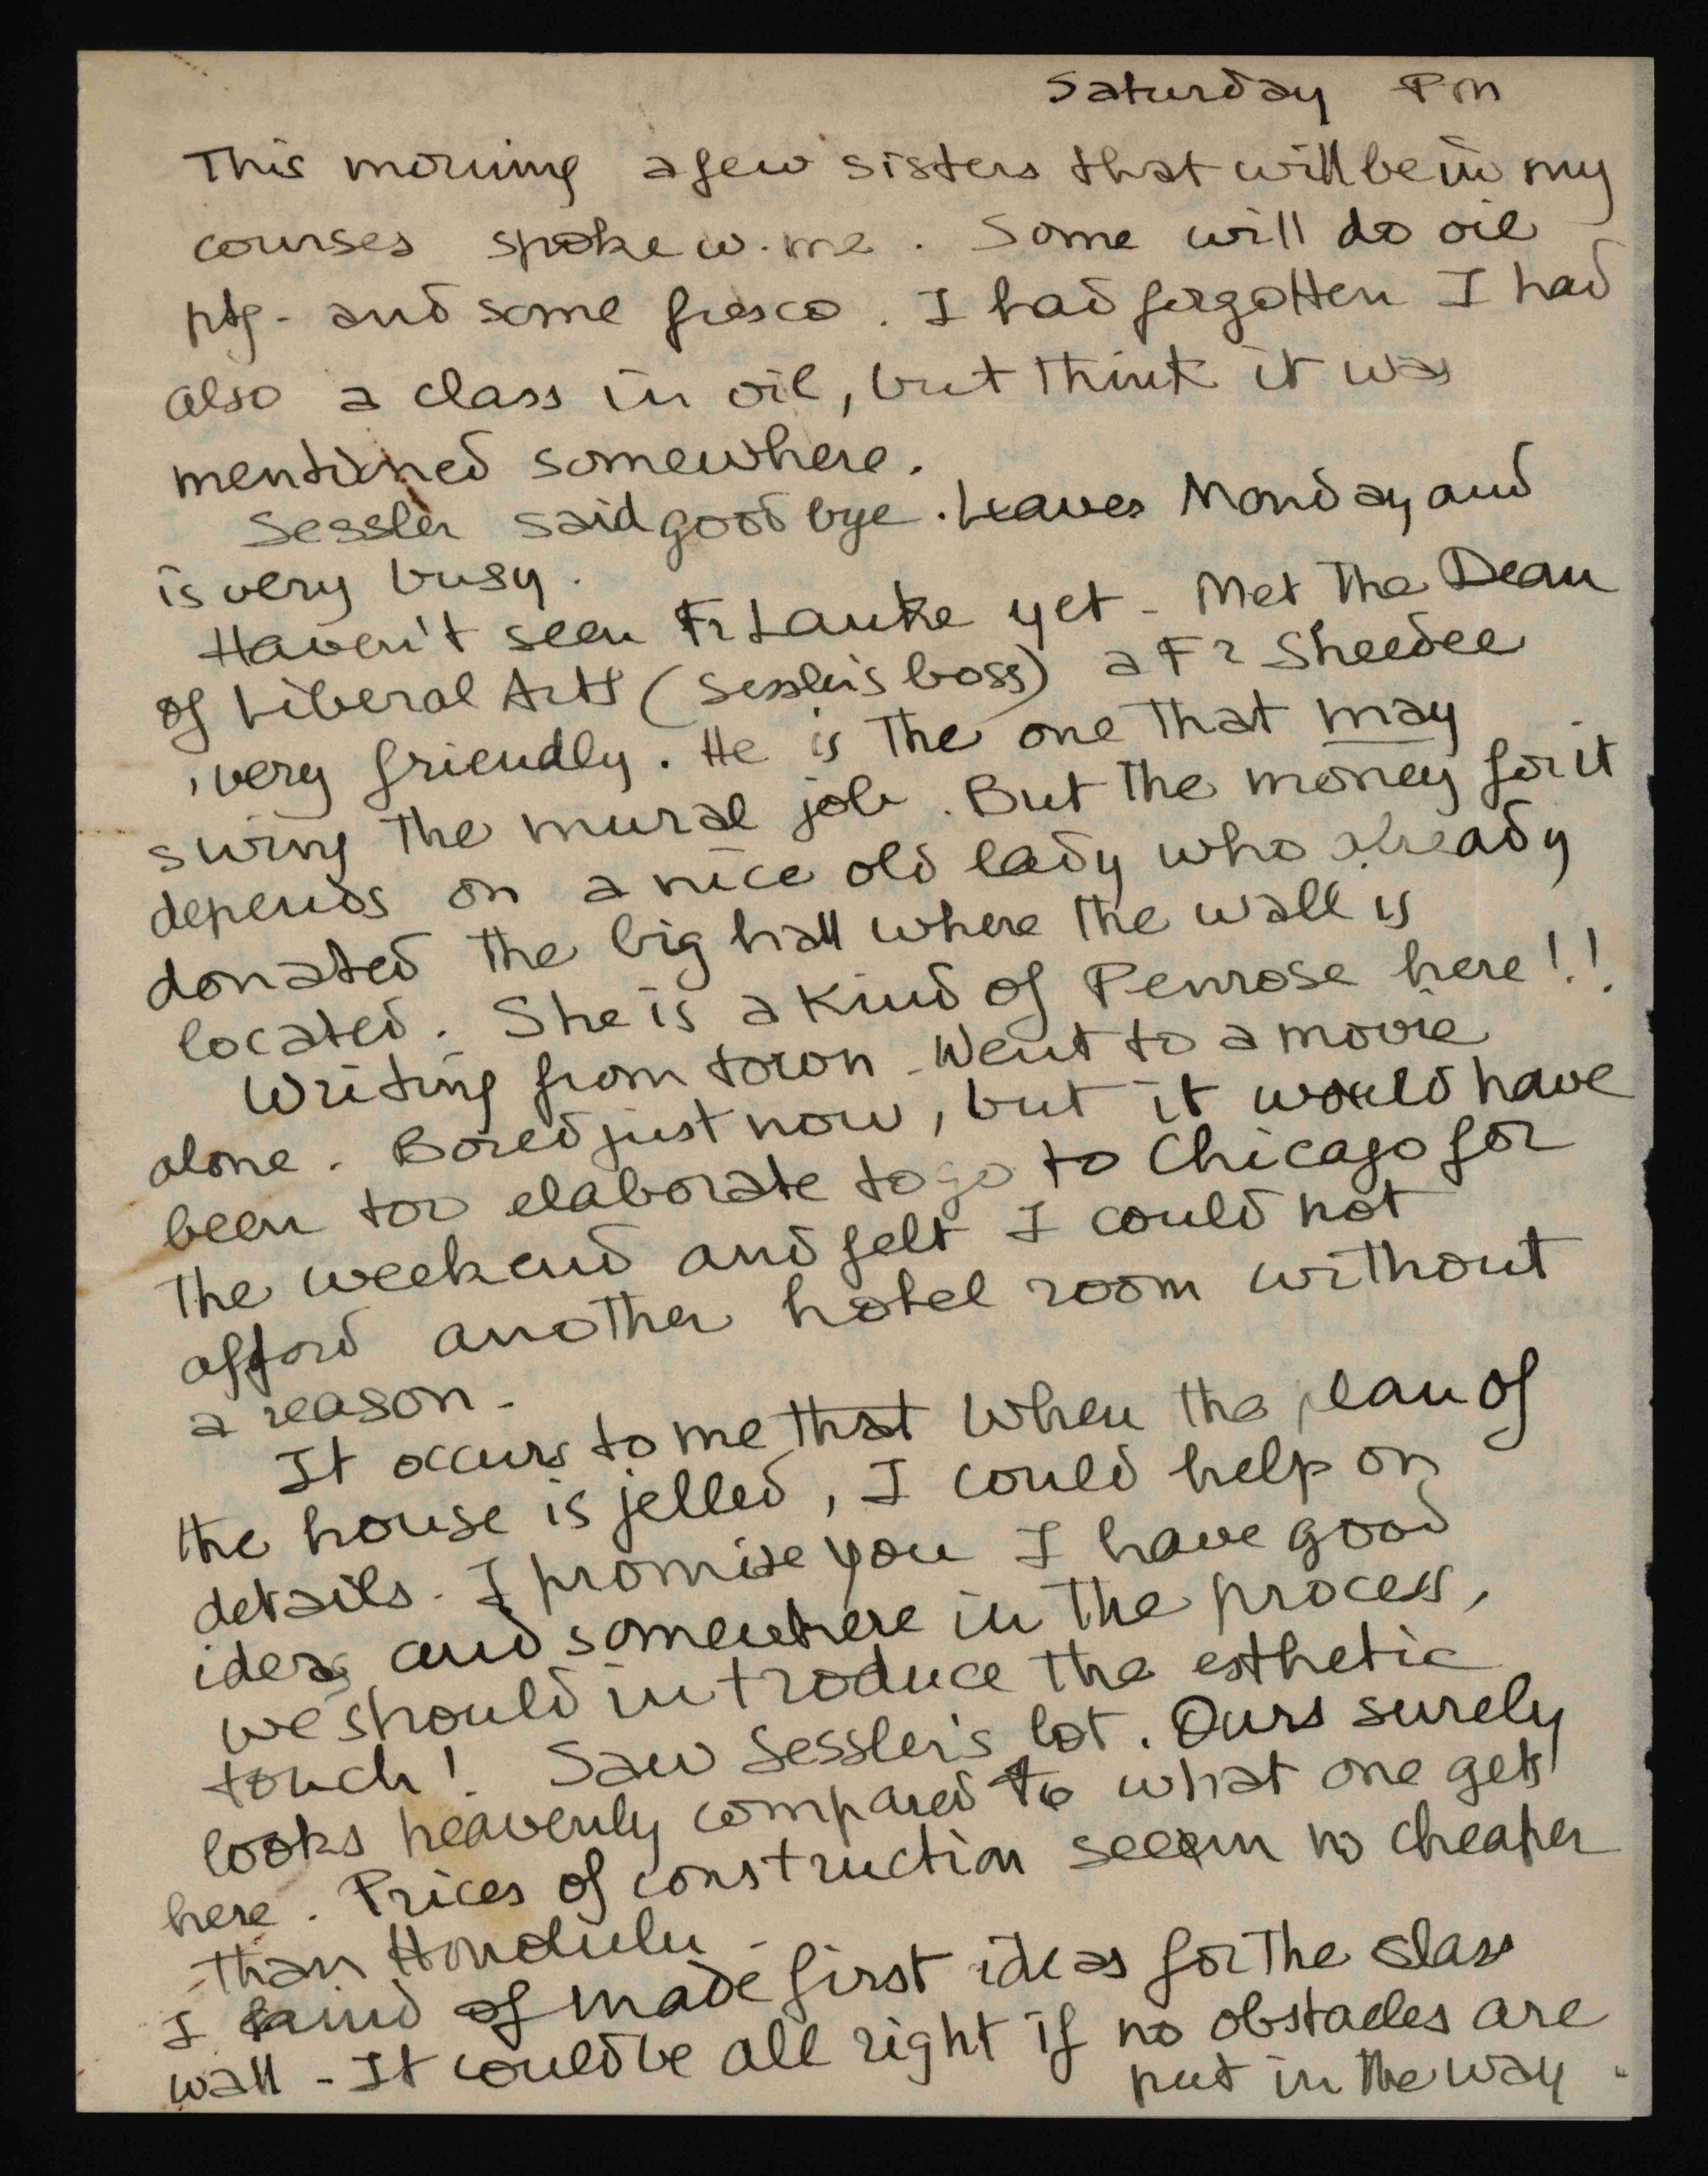 Saturday PM
This morning a few sisters that will be in my
courses spoke w. me. Some will do oil
ptg - and some fresco. I had forgotten I had
also a class in oil, but think it was
mentioned somewhere.
Sessler said good bye. Leaves Monday and
is very busy.
Haven't seen Fr Lauke yet - Met the Dean
of Liberal Arts (Sessler's boss) a Fr Sheedee
very friendly. He is the one that may
swing the mural job. But the money for it
depends on a nice old lady who already
donated the big hall where the wall is
located. She is a kind of Penrose here!!
Writing from town - Went to a movie
alone. Bored just now, but it would have
been too elaborate to go to Chicago for
the weekend and felt I could not
afford another hotel room without
a reason -
It occurs to me that when the plan of
the house is jelled, I could help on
details - I promise you I have good
ideas and somewhere in the process,
we should introduce the esthetic
touch! Saw Sessler's lot. Ours surely
looks heavenly compared to what one gets
here. Prices of construction seem no cheaper
than Honolulu -
I kind of made first ideas for the class
wall - It could be all right if no obstacles are
put in the way.